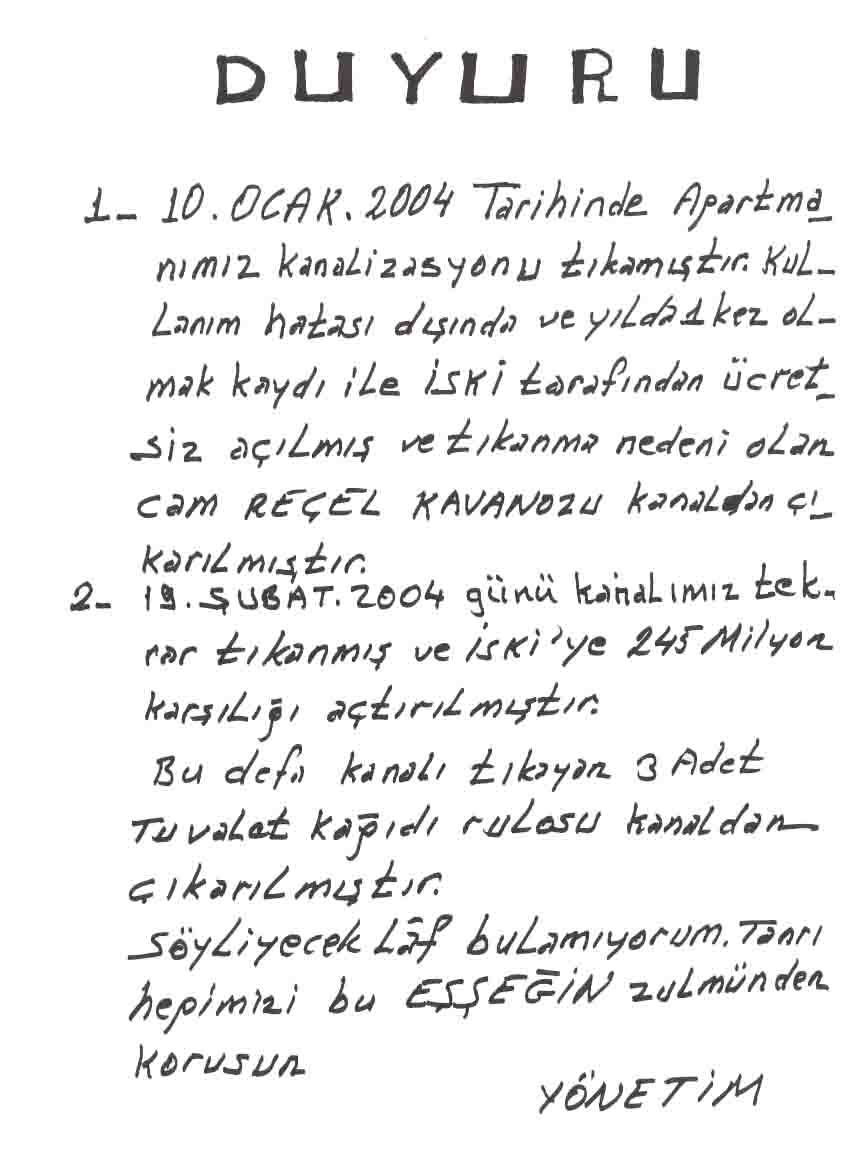 DUYURU
1- 10.OCAK.2004 Tarihinde Apartma-
nımız kanalizasyonu tıkamıştır. Kul-
lanım hatası dışında ve yılda 1 kez ol-
mak kaydı ile İSKİ tarafından ücret-
siz açılmış ve tıkanma nedeni olan
cam REÇEL KAVANOZU kanaldan çı-
karılmıştır.
2- 19.ŞUBAT.2004 günü kanalımız tek-
rar tıkanmış ve İSKİ'ye 245 Milyon
karşılığı açtırılmıştır.
Bu defa kanalı tıkayan 3 Adet
Tuvalet kağıdı rulosu kanaldan
çıkarılmıştır.
Söyliyecek Lâf bulamıyorum. Tanrı
hepimizi bu EŞŞEĞİN zulmünden
korusun
YÖNETİM